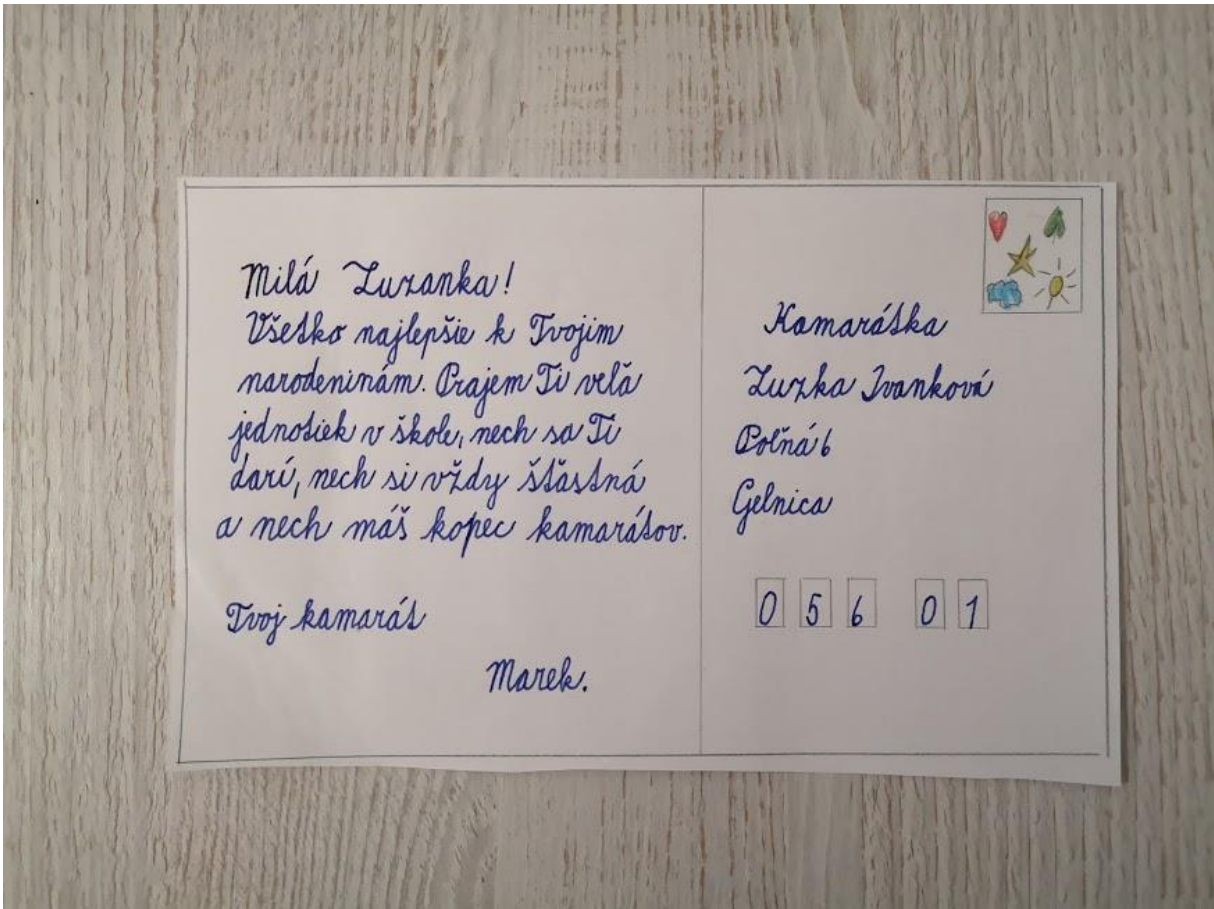 Milá Zuzanka!
Všetko najlepšie k Tvojim
narodeninám. Prajem Ti veľa
jednotiek v škole, nech sa Ti
darí, nech si vždy šťastná
a nech máš kopec kamarátov.
Tvoj kamarát
Marek.
Kamarátka
Zuzka Ivanková
Poľná 6
Gelnica
056 01